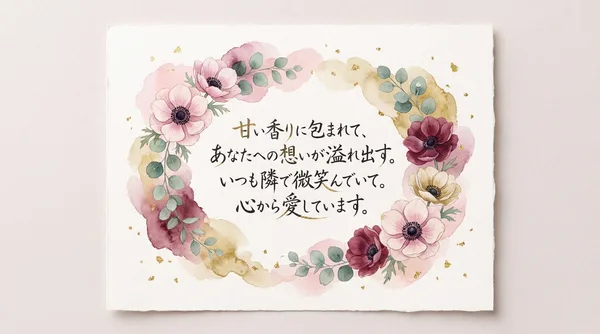 甘い香りに包まれて、
あなたへの想いが溢れ出す。
いつも隣で微笑んでいて。
心から愛しています。